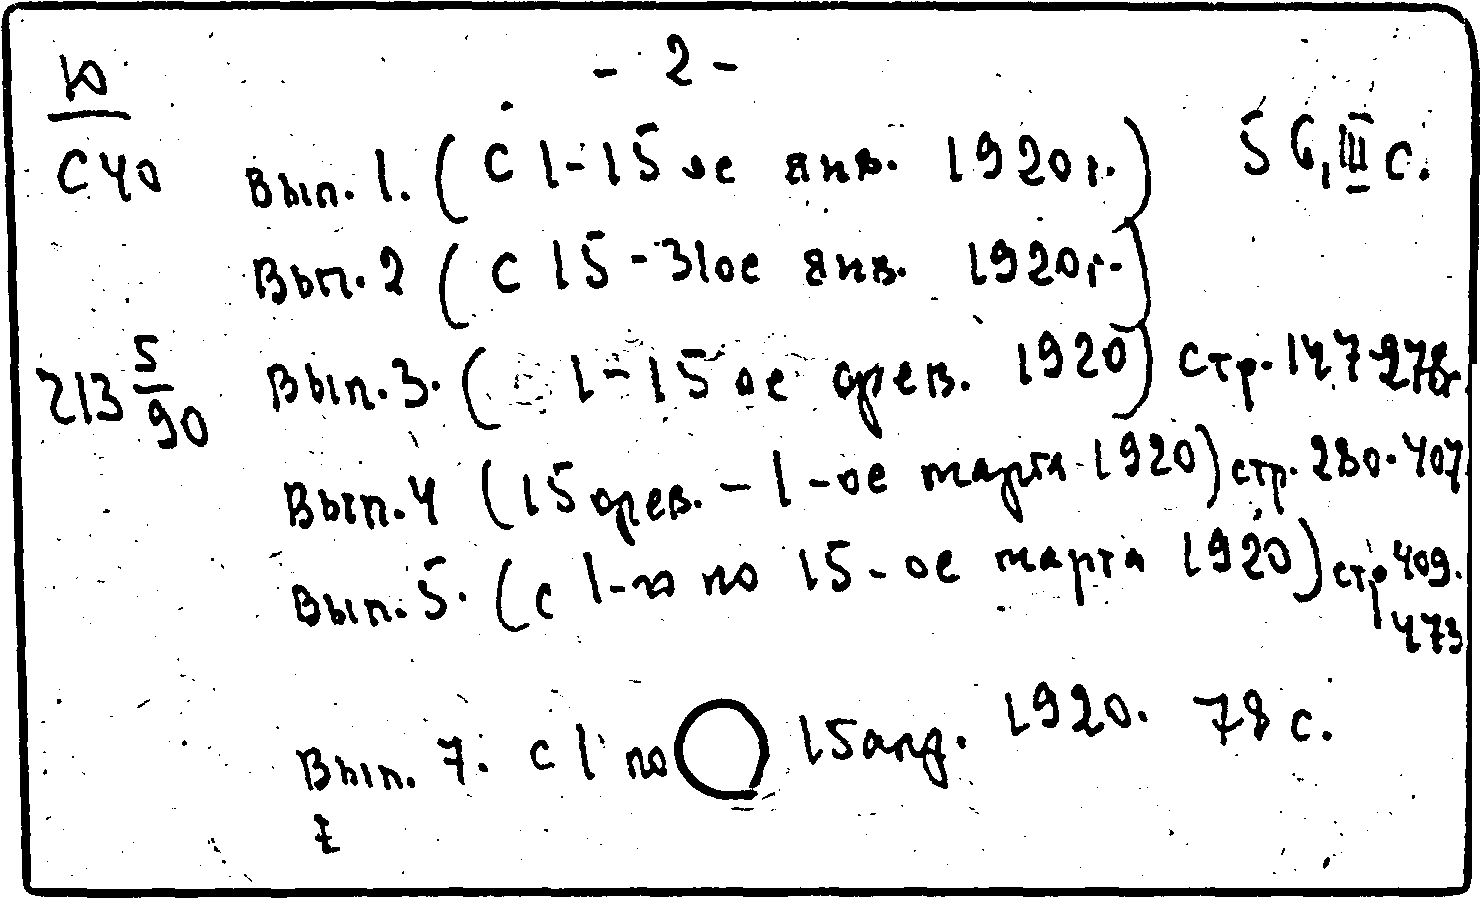 - 2 -
Ю
С40
Вып. 1. ( С 1-15 ое янв. 1920 г. ) 56, III с.
Вып. 2 ( С 15 - 31ое янв. 1920 г. )
213 5/90
Вып. 3. ( 1-15 ое фев. 1920 ) стр. 147-278
Вып. 4 ( 15 фев. - 1-ое марта 1920 ) стр. 280-407
Вып. 5. ( с 1-го по 15-ое марта 1920 ) стр 409-
473
Вып. 7. с 1 по 15 апр. 1920. 78 с.